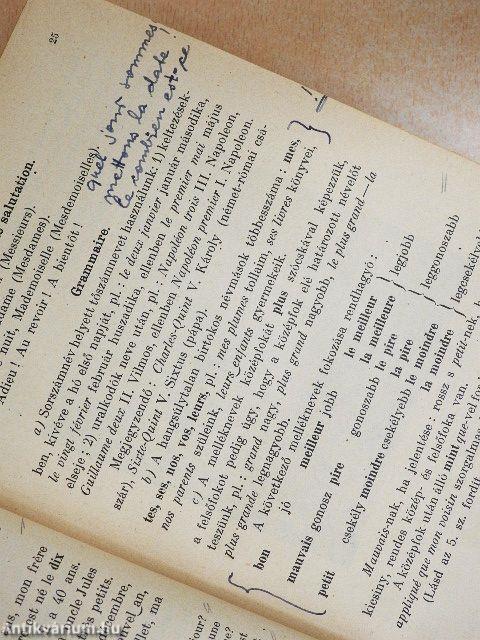 25
quel jour sommes
mettons la date!
le combien est-ce
salutation.
dame (Messieurs).
(Mesdames).
nuit, Mademoiselle (Mesdemoiselles).
Adieu! Au revoir! A bientôt!
Grammaire.
a) Sorszámnév helyett tőszámnevet használunk: 1) keltezések-
ben, kivéve a hó első napját, pl.: le deux janvier január másodika,
le vingt février február huszadika, ellenben le premier mai május
elseje; 2) uralkodók neve után, pl.: Napoléon trois III. Napoleon.
Guillaume deux II. Vilmos, ellenben Napoléon premier I. Napoleon.
Megjegyzendő: Charles-Quint V. Károly (német-római csá-
szár), Sixte-Quint V. Sixtus (pápa).
b) A hangsúlytalan birtokos névmások többesszáma: mes,
tes, ses, nos, vos, leurs, pl.: mes plumes tollaim, ses livres könyvei,
nos parents szüleink, leurs enfants gyermekeik.
c) A melléknevek középfokát plus szócskával képezzük,
a felsőfokot pedig úgy, hogy a középfok elé határozott névelőt
teszünk, pl.: grand nagy, plus grand nagyobb, le plus grand—la
plus grande legnagyobb.
A következő melléknevek fokozása rendhagyó:
bon jó meilleur jobb le meilleur la meilleure legjobb
mauvais gonosz pire gonoszabb le pire la pire leggonoszabb
petit csekély moindre csekélyebb le moindre la moindre legcsekélyebb
Mauvais-nak, ha jelentése: rossz s petit-nek, h
kicsiny, rendes közép- és felsőfoka van.
A középfok után álló mint que-vel for
appliqué que mon voisin szorgalmas
(Lásd az 5. sz. fordít
mon frère
est né le dix
a 40 ans.
oncle Jules
petits.
Antikvarium.hu